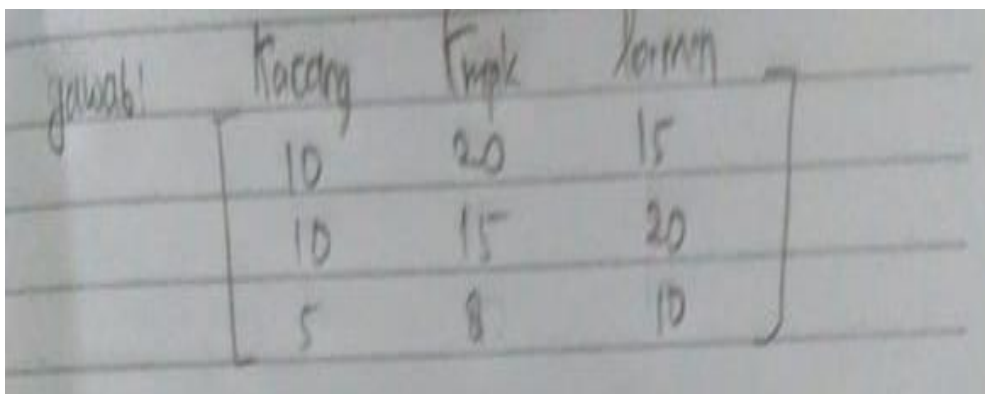 jawab! Kacang Kripik Permen
10 20 15
10 15 20
5 8 10